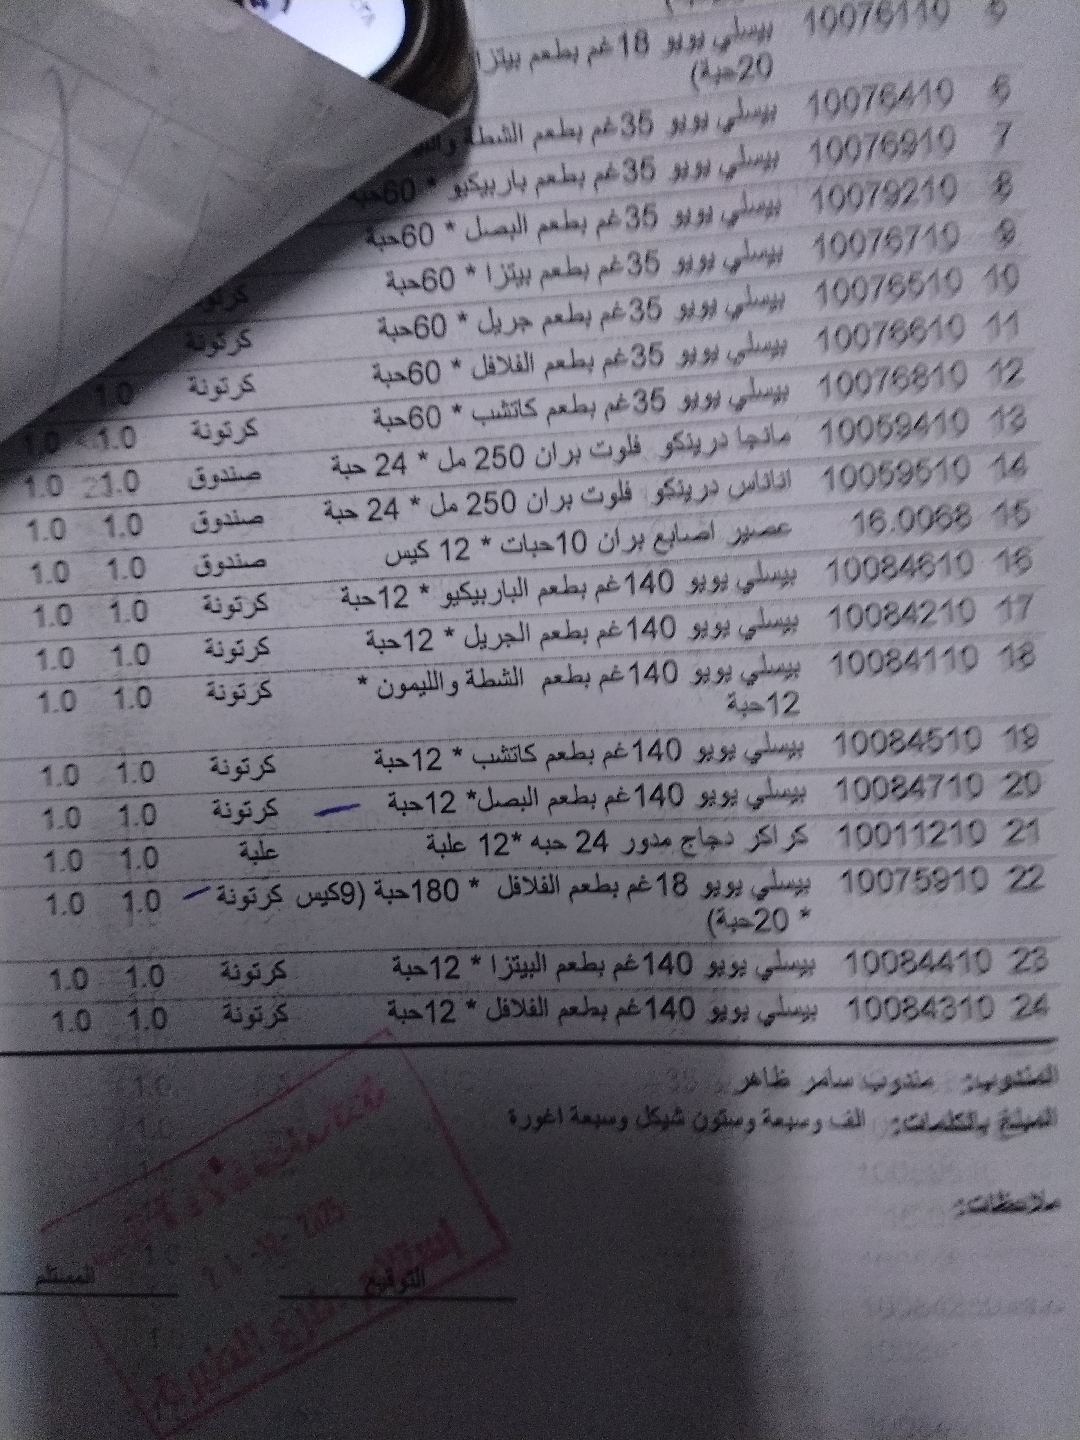 5 10076110 بيسلي يويو 18غم بطعم بيتزا
20حبة)
6 10076410 بيسلي يويو 35غم بطعم الشطة
7 10076910 بيسلي يويو 35غم بطعم باربيكيو * 60حبة
8 10079210 بيسلي يويو 35غم بطعم البصل * 60حبة
9 10076710 بيسلي يويو 35غم بطعم بيتزا * 60حبة
10 10076510 بيسلي يويو 35غم بطعم جريل * 60حبة كرتونة
11 10076610 بيسلي يويو 35غم بطعم الفلافل * 60حبة كرتونة 1.0
12 10076810 بيسلي يويو 35غم بطعم كاتشب * 60حبة كرتونة 1.0 1.0
13 10059410 مانجا درينكو فلوت بران 250 مل * 24 حبة صندوق 1.0 1.0
14 10059510 اناناس درينكو فلوت بران 250 مل * 24 حبة صندوق 1.0 1.0
15 16.0068 عصير اصابع بران 10حبات * 12 كيس صندوق 1.0 1.0
16 10084610 بيسلي يويو 140غم بطعم الباربيكيو * 12حبة كرتونة 1.0 1.0
17 10084210 بيسلي يويو 140غم بطعم الجريل * 12حبة كرتونة 1.0 1.0
18 10084110 بيسلي يويو 140غم بطعم الشطة والليمون * كرتونة 1.0 1.0
12حبة
19 10084510 بيسلي يويو 140غم بطعم كاتشب * 12حبة كرتونة 1.0 1.0
20 10084710 بيسلي يويو 140غم بطعم البصل* 12حبة كرتونة 1.0 1.0
21 10011210 كراكر دجاج مدور 24 حبه *12 علبة علبة 1.0 1.0
22 10075910 بيسلي يويو 18غم بطعم الفلافل * 180حبة (9كيس كرتونة 1.0 1.0
* 20حبة)
23 10084410 بيسلي يويو 140غم بطعم البيتزا * 12حبة كرتونة 1.0 1.0
24 10084310 بيسلي يويو 140غم بطعم الفلافل * 12حبة كرتونة 1.0 1.0
المندوب: مندوب سامر ظاهر
المبلغ بالكلمات: الف وسبعة وستون شيكل وسبعة اغورة
ملاحظات:
التوقيع المستلم
2025